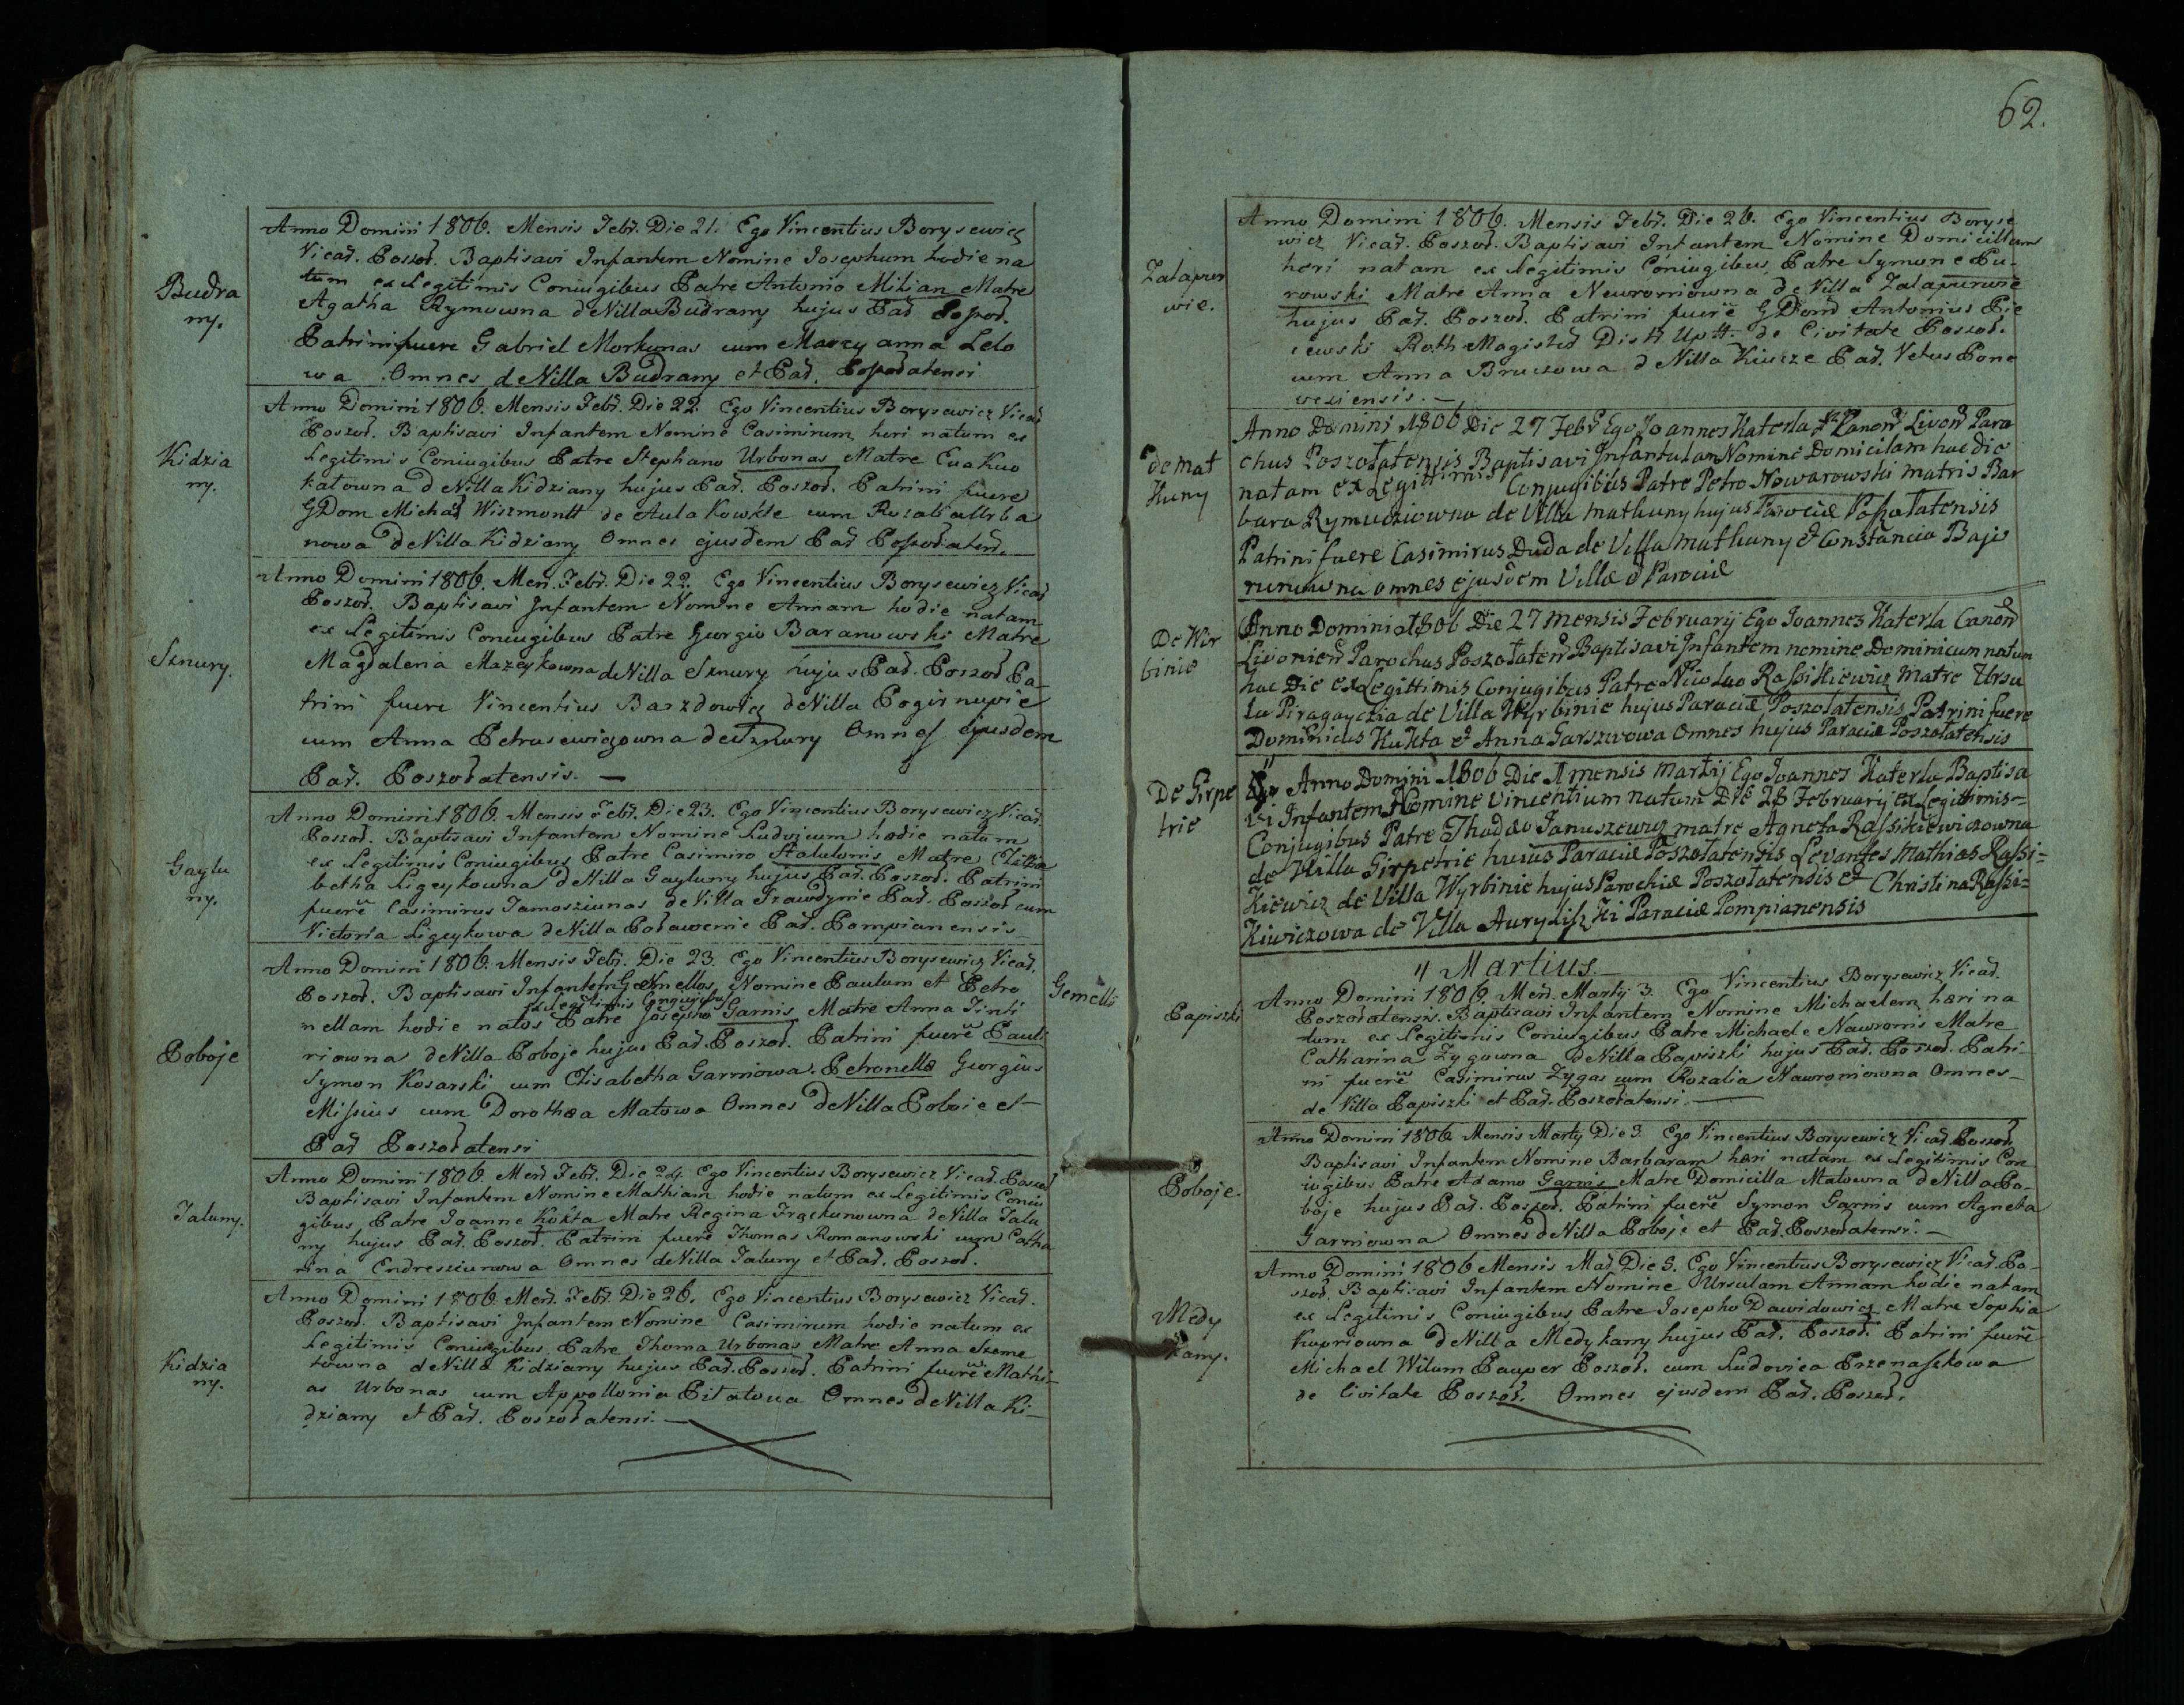 Budra
ny.
Anno Domini 1806. Mensis Febr. Die 21. Ego Vincentius Borysewicz
Vicar. Poszoł. Baptisavi Infantem Nomine Josephum hodie na
tum ex Legitimis Coniugibus Patre Antonio Mikian Matre
Agatha Rymowna de Villa Budrany hujus Par
Patrini fuere Gabriel Morkunas cum Maryanna Lelo
wa Omnes de Villa Budrany et Par.
Kidzia
ny.
Anno Domini 1806. Mensis Febr. Die 22. Ego Vincentius Borysewicz Vicar
Poszoł. Baptisavi Infantem Nomine Casimirum heri natum ex
Legitimis Coniugibus Patre Stephano Urbonas Matre Eva Kuo
katowna de Villa Kidziany hujus Par. Poszoł. Patrini fuere
GDom Michał Wiszmontt de Aula Kowkle cum Rosalia Urba
nowa de Villa Kidziany Omnes ejusdem Par
Sznury.
Anno Domini 1806. Men. Febr. Die 22. Ego Vincentius Borysewicz Vicar
Poszoł. Baptisavi Infantem Nomine Annam hodie natam
ex Legitimis Coniugibus Patre Georgio Baranowski Matre
Magdalena Mazeykowna de Villa Sznury hujus Par. Poszoł Pa-
trini fuere Vincentius Barzdowicz de Villa Pogirnupie
cum Anna Petrusewiczowna de Sznury Omnes ejusdem
Par. Poszołatensis. —
Gaylu
ny.
Anno Domini 1806. Mensis Febr. Die 23. Ego Vincentius Borysewicz Vicar.
Poszoł. Baptisavi Infantem Nomine Ludvicum hodie natum
ex Legitimis Coniugibus Patre Casimiro Stalulonis Matre Eliza
betha Ligeykowna de Villa Gayluny hujus Par. Poszoł. Patrini
fuere Casimirus Tamosziunas de Villa Par. Poszoł cum
Victoria Ligeykowa de Villa Poławenie Par. Pompianensis
Poboje
Anno Domini 1806. Mensis Febr. Die 23. Ego Vincentius Borysewicz Vicar.
Poszoł. Baptisavi Infantem Gemellos Nomine Paulum et Petro
Gemelli
ex Legitimis Congiugibus
nellam hodie natos Patre Josepho Garnis Matre Anna Tinti
riowna de Villa Poboje hujus Par. Poszoł. Patrini fuere Pauli
Symon Kosarski cum Elisabetha Garniowa. Petronellæ Georgius
Missius cum Dorothea Matowa Omnes de Villa Poboje et
Par Poszołatensi
Taluny.
Anno Domini 1806. Men Febr. Die 24. Ego Vincentius Borysewicz Vicar. Poszoł
Baptisavi Infantem Nomine Mathiam hodie natum ex Legitimis Coniu
gibus Patre Joanne Kokta Matre Regina Frąckunowna de Villa Talu
ny hujus Par. Poszoł. Patrini fuere Thomas Romanowski cum Catha
rina Endresziunowa Omnes de Villa Taluny et Par. Poszoł.
Kidzia
ny.
Anno Domini 1806. Men. Febr. Die 26. Ego Vincentius Borysewicz Vicar.
Poszoł. Baptisavi Infantem Nomine Casimirum hodie natum ex
Legitimis Coniugibus Patre Thoma Urbonas Matre Anna Szeme
towna de Villa Kidziany hujus Par. Poszoł. Patrini fuere Mathi-
as Urbonas cum Appollonia Pitatowa Omnes de Villa Ki-
dziany et Par. Poszołatensi. —
62.
Zalapur
wie.
Anno Domini 1806. Mensis Febr. Die 26. Ego Vincentius Boryse
wicz Vicar. Poszoł. Baptisavi Infantem Nomine Domicillam
heri natam ex Legitimis Coniugibus Patre Symone Pu-
rowski Matre Anna Newroniowna de Villa Zalapurwie
hujus Par. Poszoł. Patrini fuere GDom Antonius Pie
cewski Roth Magistr Distr Upit. de Civitate Poszoł.
cum Anna Bruczowa de Villa Kiucze Par. Vetus Pone
weziensis. —
de mat
Kuny
Anno Domini 1806 Die 27 Febr Ego Joannes Katerla Canon Livon Paro
chus Poszołatensis Baptisavi Infantulam Nomine Domicilam hac die
natam ex Legittimis Conjugibus Patre Petro Nowarowski matris Bar
bara Rymudziowna de Villa mathuny hujus Parociæ Poszołatensis
Patrini fuere Casimirus Duda de Villa mathuny & Constancia Baje
runowna omnes ejusdem Villæ & Parociæ
De Wir
binie
Anno Domini 1806 Die 27 mensis February Ego Joannes Katerla Canon
Livonien Parochus Poszołaten Baptisavi Infantem nomine Dominicum natum
hac Die ex Legittimis Conjugibus Patre Nicolao Rassikiewicz matre Ursu
la Piragayczia de Villa Wyrbinie hujus Parociæ Poszołatensis Patrini fuere
Dominicus Kukta & Anna Garszwowa Omnes hujus Parociæ Poszołatensis
De Girpe
trie
Anno Domini 1806 Die 1 mensis Martij Ego Joannes Katerla Baptisa
vi Infantem Nomine Vincentium natum Die 28 February ex Legittimis=
Conjugibus Patre Thadæo Januszewicz matre Agneta Rassikiewiczowna
de Villa Girpetrie hujus Parociæ Poszołatensis Levantes Mathias Rassi=
kiewicz de Villa Wyrbinie hujus Parochiæ Poszołatensis & Christina Rassi=
kiewiczowa de Villa Auryliszki Parociæ Pompianensis
" Martius. —
Papiszki
Anno Domini 1806. Men. Martij 3. Ego Vincentius Borysewicz Vicar.
Poszołatensis. Baptisavi Infantem Nomine Michaelem hæri na
tum ex Legitimis Coniugibus Patre Michaele Nawronis Matre
Catharina Zygowna de Villa Papiszki hujus Par. Poszoł. Patri-
ni fuere Casimirus Zygas cum Rozalia Nawroniowna Omnes
de Villa Papiszki et Par. Poszołatensi. —
Poboje.
Anno Domini 1806 Mensis Martij Die 3. Ego Vincentius Borysewicz Vicar Poszoł.
Baptisavi Infantem Nomine Barbaram hæri natam ex Legitimis Con
iugibus Patre Adamo Garnis Matre Domicilla Matowna de Villa Po-
boje hujus Par. Poszoł. Patrini fuere Symon Garnis cum Agneta
Garniowna Omnes de Villa Poboje et Par. Poszołatensi. —
Medy
kany.
Anno Domini 1806 Mensis Mar Die 3. Ego Vincentius Borysewicz Vicar. Po-
szoł. Baptisavi Infantem Nomine Ursulam Annam hodie natam
ex Legitimis Coniugibus Patre Josepho Dawidowicz Matre Sophia
Kupriowna de Villa Medykany hujus Par. Poszoł. Patrini fuere
Michael Wilum Pauper Poszoł. cum Ludovica Przenaszkowa
de Civitate Poszoł. Omnes ejusdem Par. Poszoł.